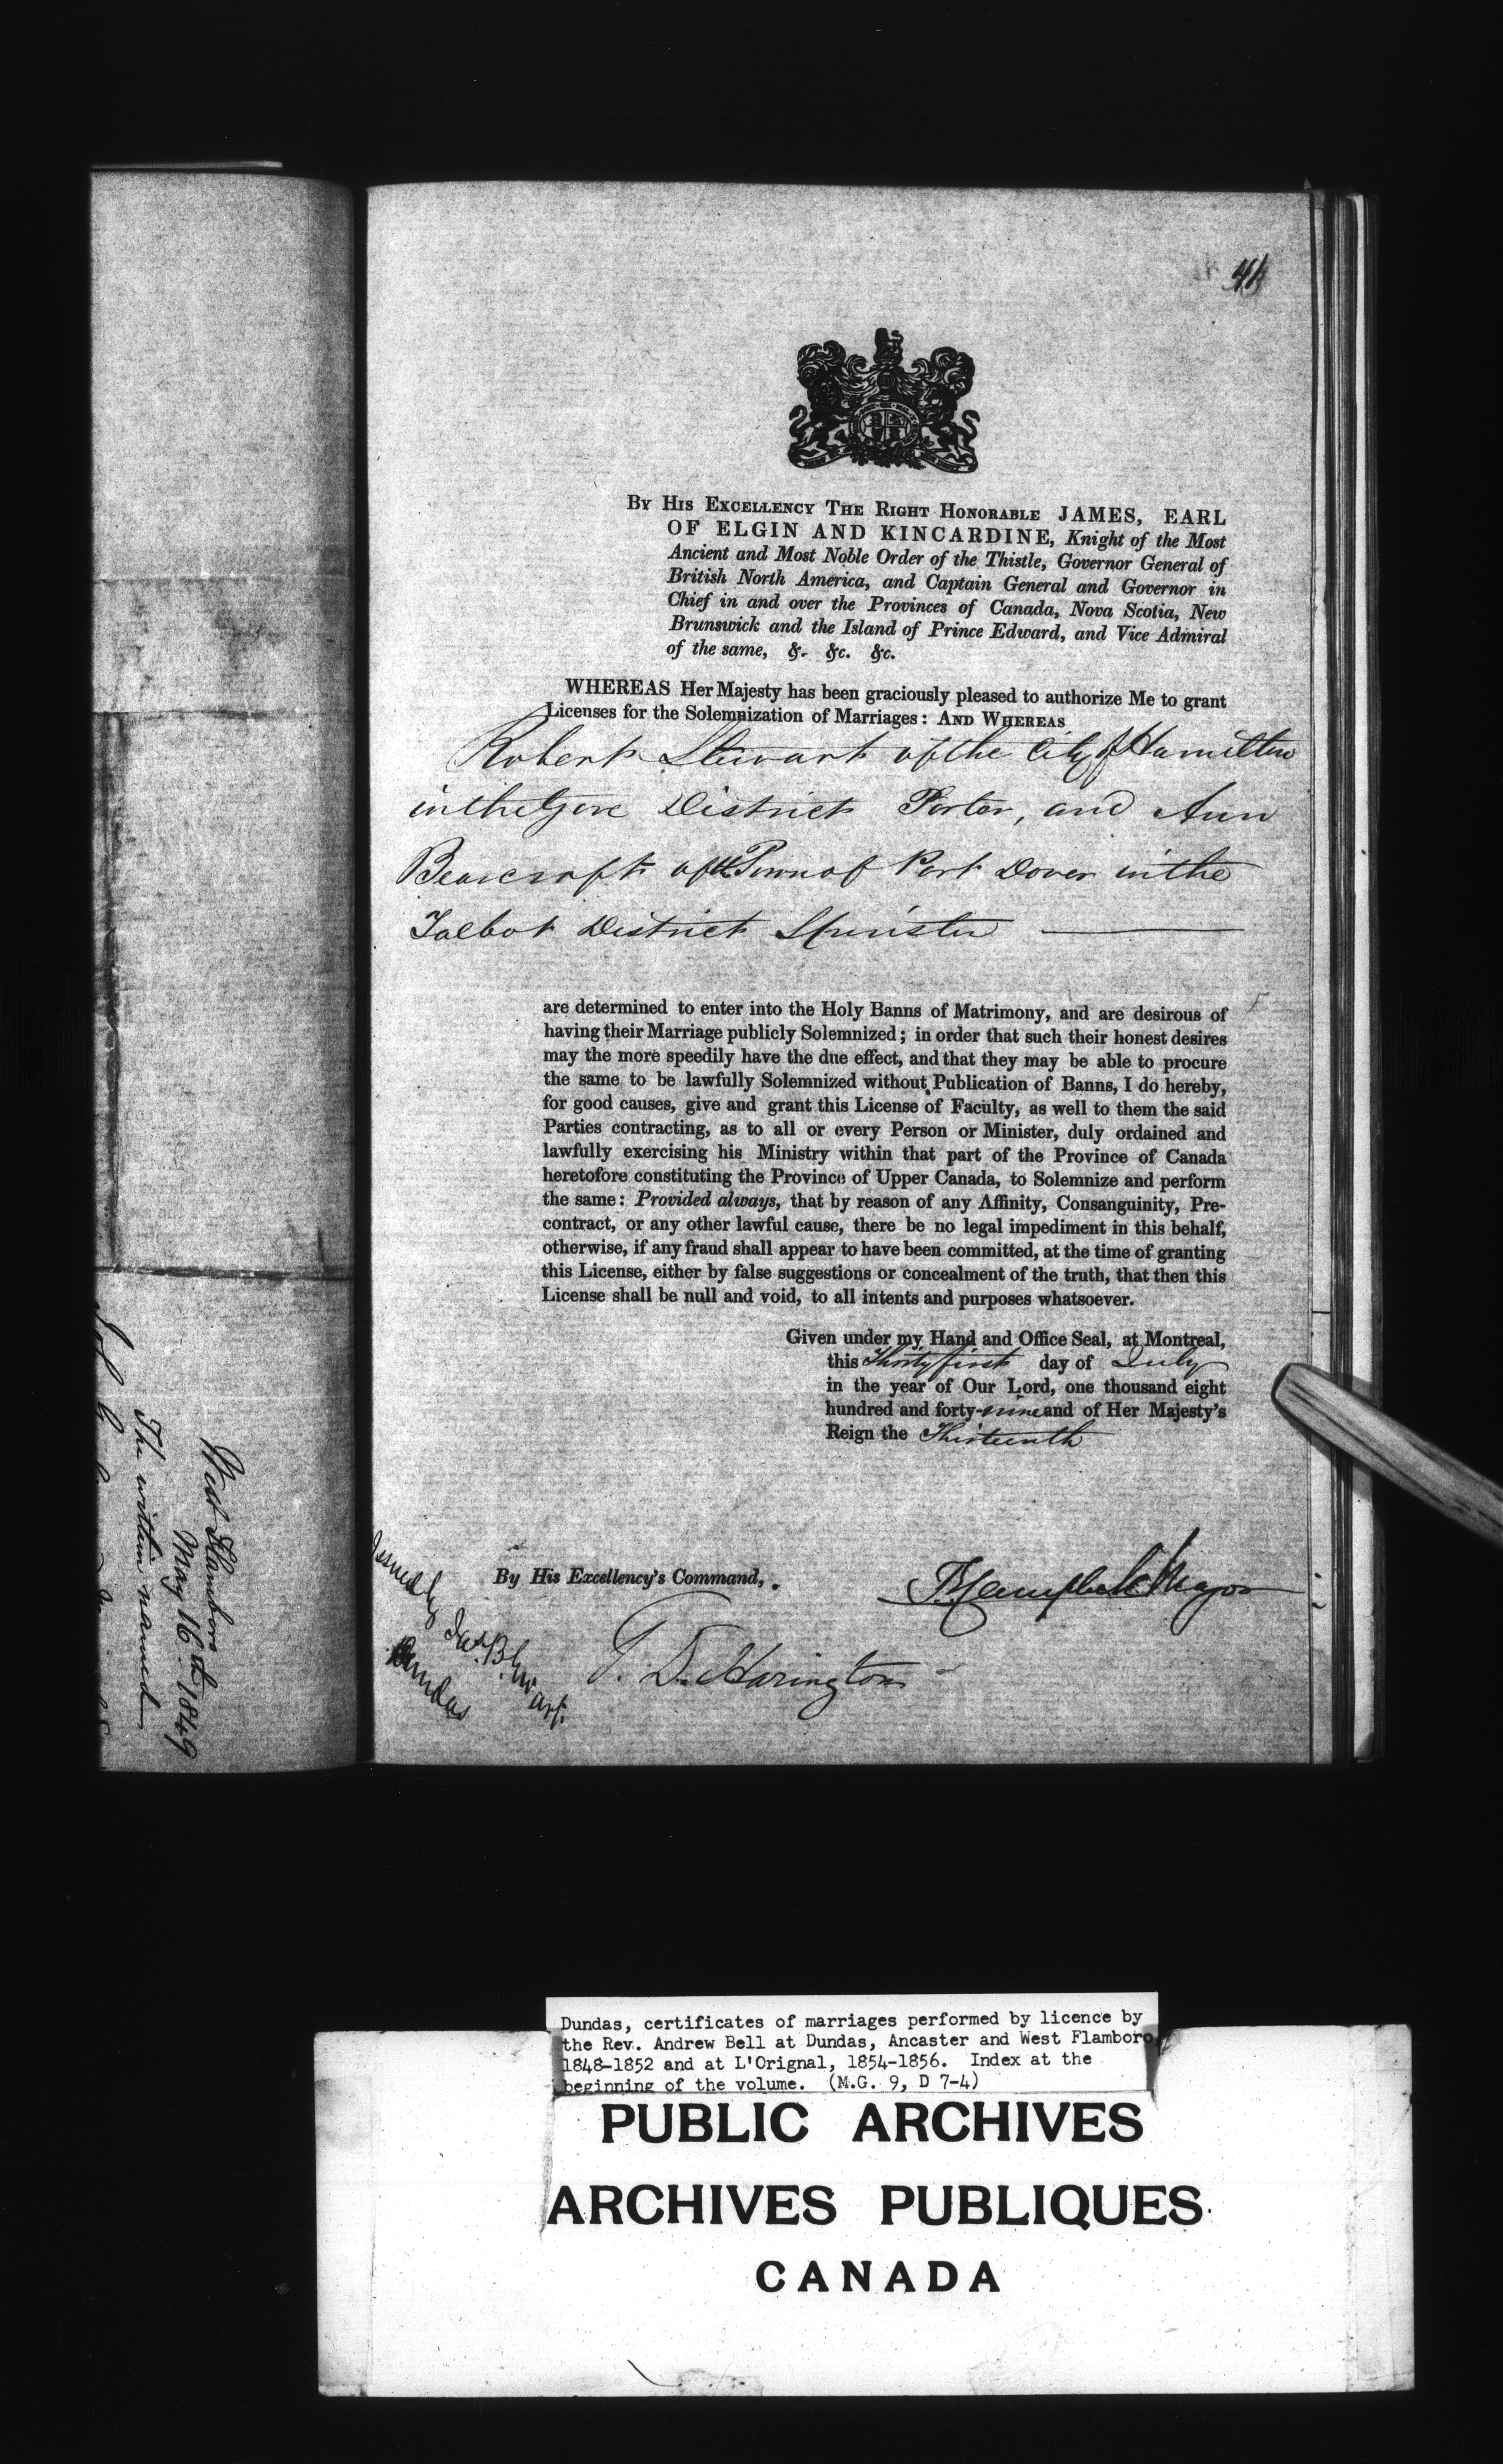 41
BY HIS EXCELLENCY THE RIGHT HONORABLE JAMES, EARL
OF ELGIN AND KINCARDINE, Knight of the Most
Ancient and Most Noble Order of the Thistle, Governor General of
British North America, and Captain General and Governor in
Chief in and over the Provinces of Canada, Nova Scotia, New
Brunswick and the Island of Prince Edward, and Vice Admiral
of the same, &. &c. &c.
WHEREAS Her Majesty has been graciously pleased to authorize Me to grant
Licenses for the Solemnization of Marriages: AND WHEREAS
Robert Stewart of the City of Hamilton
in the Gore District Porter, and Ann
Bearcroft of the Town of Port Dover in the
Talbot District Spinster
are determined to enter into the Holy Banns of Matrimony, and are desirous of
having their Marriage publicly Solemnized; in order that such their honest desires
may the more speedily have the due effect, and that they may be able to procure
the same to be lawfully Solemnized without Publication of Banns, I do hereby,
for good causes, give and grant this License of Faculty, as well to them the said
Parties contracting, as to all or every Person or Minister, duly ordained and
lawfully exercising his Ministry within that part of the Province of Canada
heretofore constituting the Province of Upper Canada, to Solemnize and perform
the same: Provided always, that by reason of any Affinity, Consanguinity, Pre-
contract, or any other lawful cause, there be no legal impediment in this behalf,
otherwise, if any fraud shall appear to have been committed, at the time of granting
this License, either by false suggestions or concealment of the truth, that then this
License shall be null and void, to all intents and purposes whatsoever.
Given under my Hand and Office Seal, at Montreal,
this Thirty first day of July
in the year of Our Lord, one thousand eight
hundred and forty-nine and of Her Majesty's
Reign the Thirteenth
By His Excellency's Command,
T. Campbell Major
T. D. Harington
Issued by Jas. B. Ewart
Dundas
West Flamboro
May 16th 1849
The within named
Dundas, certificates of marriages performed by licence by
the Rev. Andrew Bell at Dundas, Ancaster and West Flamboro,
1848-1852 and at L'Orignal, 1854-1856. Index at the
beginning of the volume. (M.G. 9, D 7-4)
PUBLIC ARCHIVES
ARCHIVES PUBLIQUES
CANADA